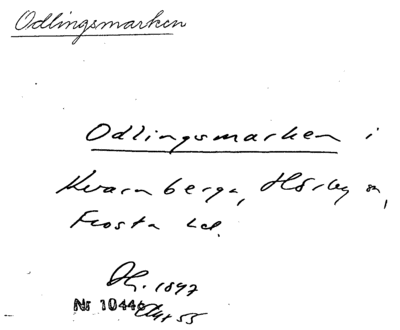 Odlingsmarken
Odlingsmarken i
Kvarnberga, Hörby sn,
Frosta hd.
1897
Nr 10446 55